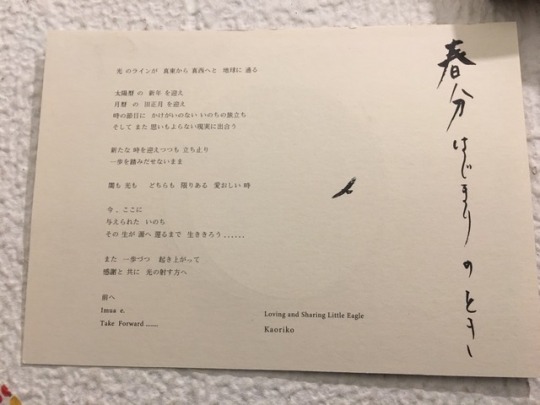 春分 はじまりのとき
光 のラインが 真東から 真西へと 地球に 通る
太陽暦 の 新年 を迎え
月暦 の 旧正月 を迎え
時の節目に かけがいのない いのちの旅立ち
そして また 思いもよらない現実に出会う
新たな 時を迎えつつも 立ち止り
一歩を踏みだせないまま
闇も 光も どちらも 限りある 愛おしい 時
今 、ここに
与えられた いのち
その 生が 源へ 還るまで 生ききろう......
また 一歩づつ 起き上がって
感謝と 共に 光の射す方へ
前へ
Imua e.
Take Forward ......
Loving and Sharing Little Eagle
Kaoriko